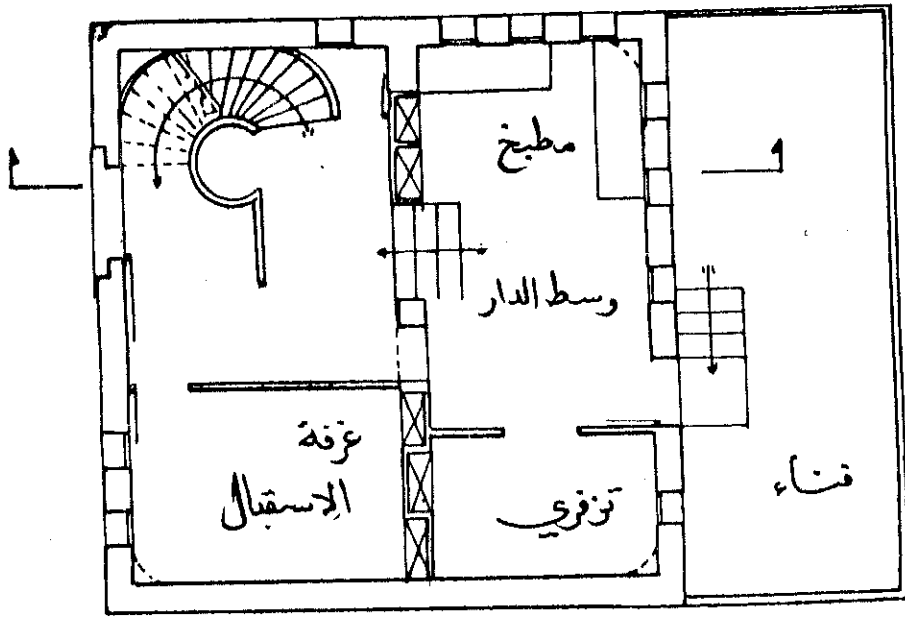 مطبخ
وسط الدار
غرفة
الاستقبال
تزفري
فناء